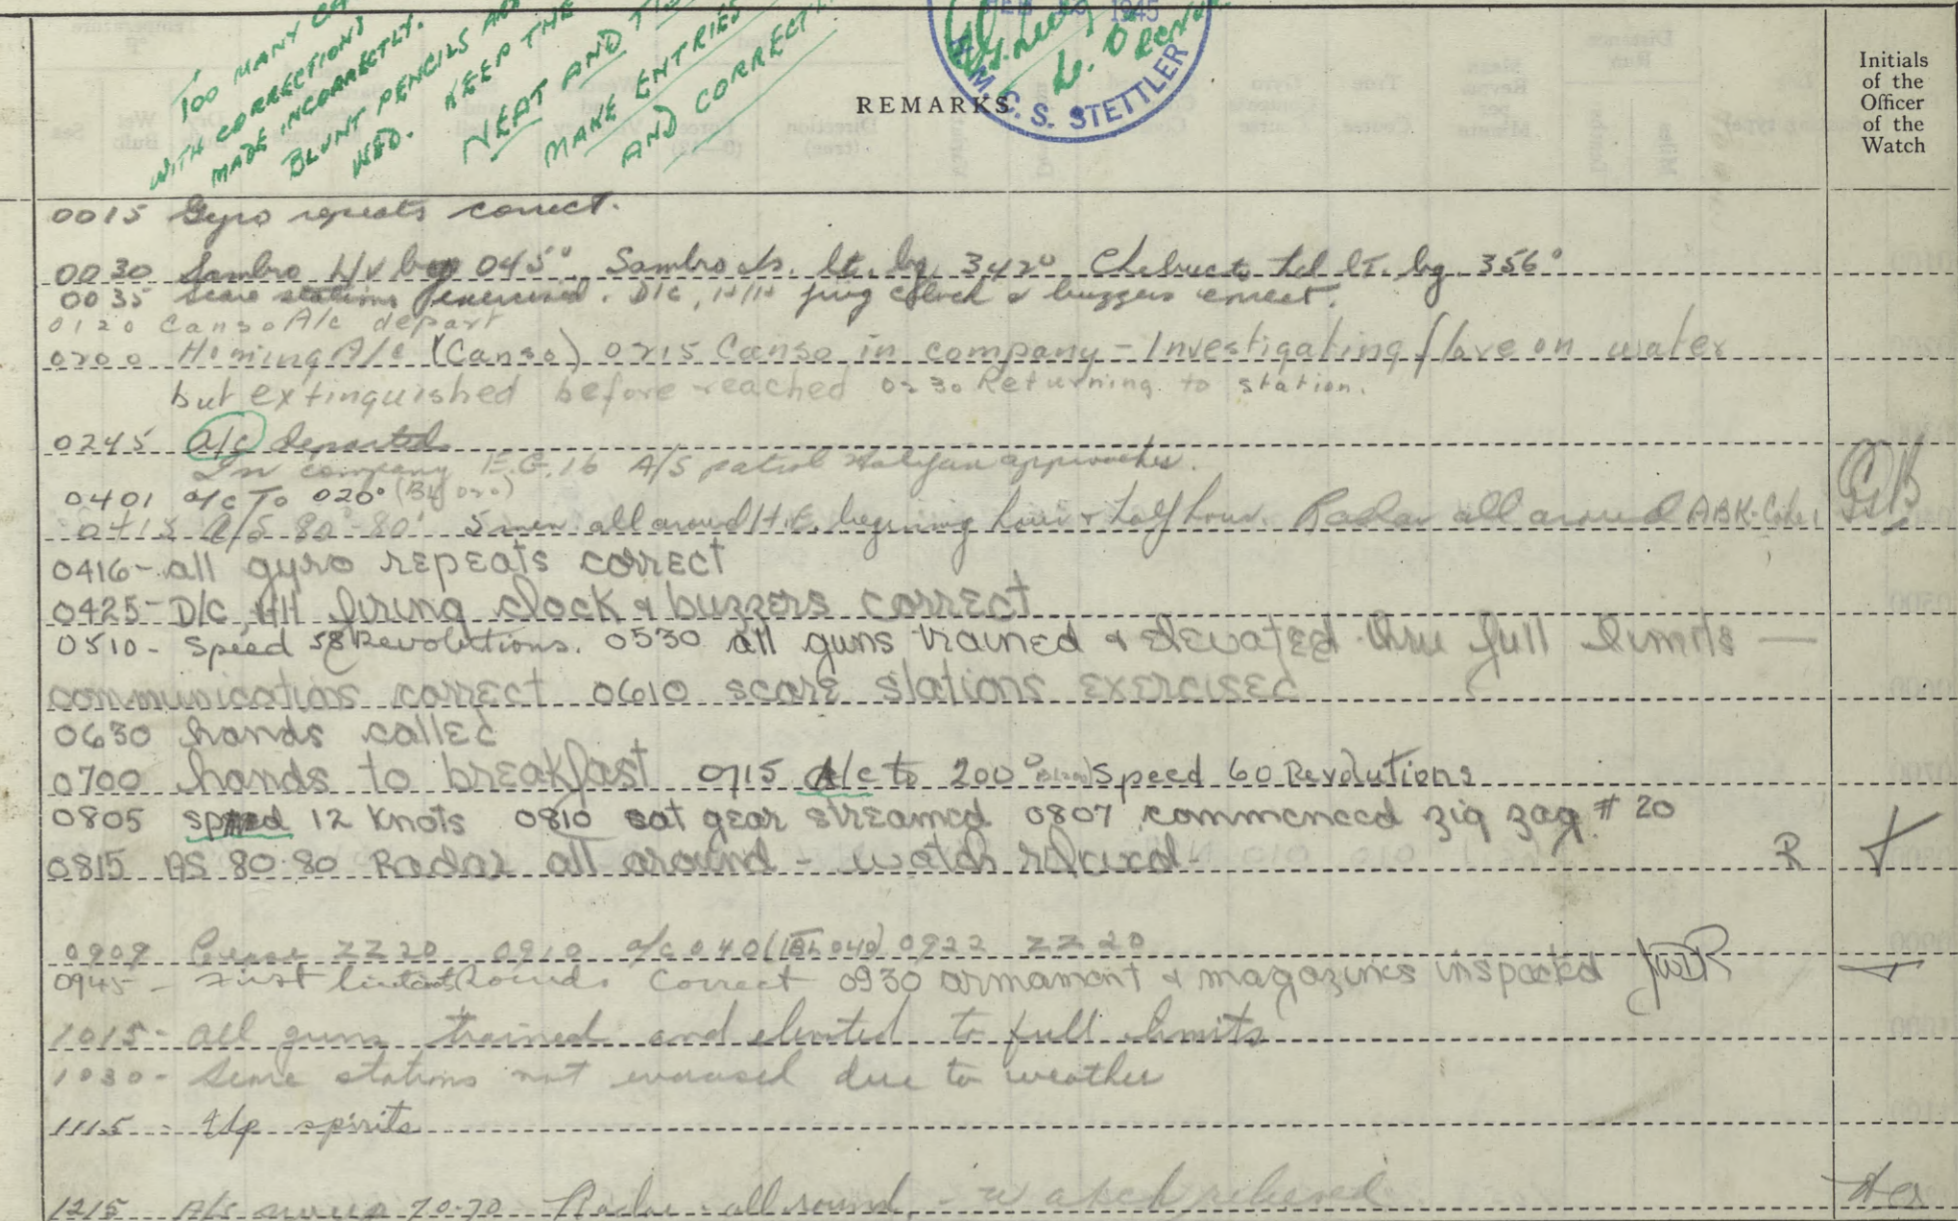 TOO MANY
WITH CORRECTIONS
MADE INCORRECTLY.
BLUNT PENCILS
KEEP THE
NEAT AND
MAKE ENTRIES
AND CORRECT
1945
H.M.C.S. STETTLER
REMARKS
Initials
of the
Officer
of the
Watch
0015 Gyro repeats correct.
0030 Sambro L/V brg 045° Sambro Is. lt. bg 342° Chebucto hd lt. bg 356°
0035 Scare stations exercised. D/C, H/H firing clock & buzzers correct.
0120 Canso A/c depart
0200 Homing A/c (Canso) 0215 Canso in company - Investigating flare on water
but extinguished before reached 0230 Returning to station.
0245 A/C departed
In company E.G. 16 A/S patrol Halifax approaches.
0401 a/c To 020°
0415 A/S 80°-80° 5 min. all around H.E. begining hour & half hour. Radar all around ABK-
0416 - all gyro repeats correct
0425 - D/C, HH firing clock & buzzers correct
0510 - Speed 58 Revolutions. 0530 all guns trained & elevated thru full limits —
communications correct 0610 scare stations exercised
0630 hands called
0700 hands to breakfast 0715 A/c to 200° Speed 60 Revolutions
0805 speed 12 Knots 0810 cat gear streamed 0807 commenced zig zag # 20
0815 AS 80-80 Radar all around - watch relieved - R
0909 Cease ZZ20 0910 a/c 040 (BL 040) 0922 ZZ 20
0945 - First lieutenant Rounds Correct 0930 armament & magazines inspected JWDR
1015 - all guns trained and elevated to full limits
1030 - Scare stations not exercised due to weather
1115 - Up spirits
1215 A/S sweep 70-70 Radar - all round, - watch relieved